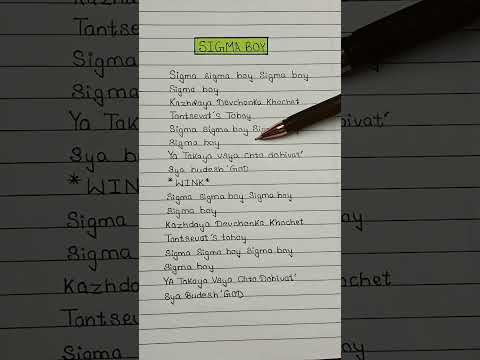 SIGMA BOY
Sigma sigma boy Sigma boy
Sigma boy
Kazhdaya Devchonka Khochet
Tantsevat's Toboy
Sigma Sigma boy Sig
Sigma boy
Ya Takaya vsya Chto dobivat'
Sya budesh' GOD
*WINK*
Sigma Sigma boy Sigma boy
Sigma boy
Kazhdaya Devchonka Khochet
Tantsevat's toboy
Sigma Sigma boy Sigma boy
Sigma boy
YA Takaya Vsya Chto Dobivat'
Sya Budesh' GOD